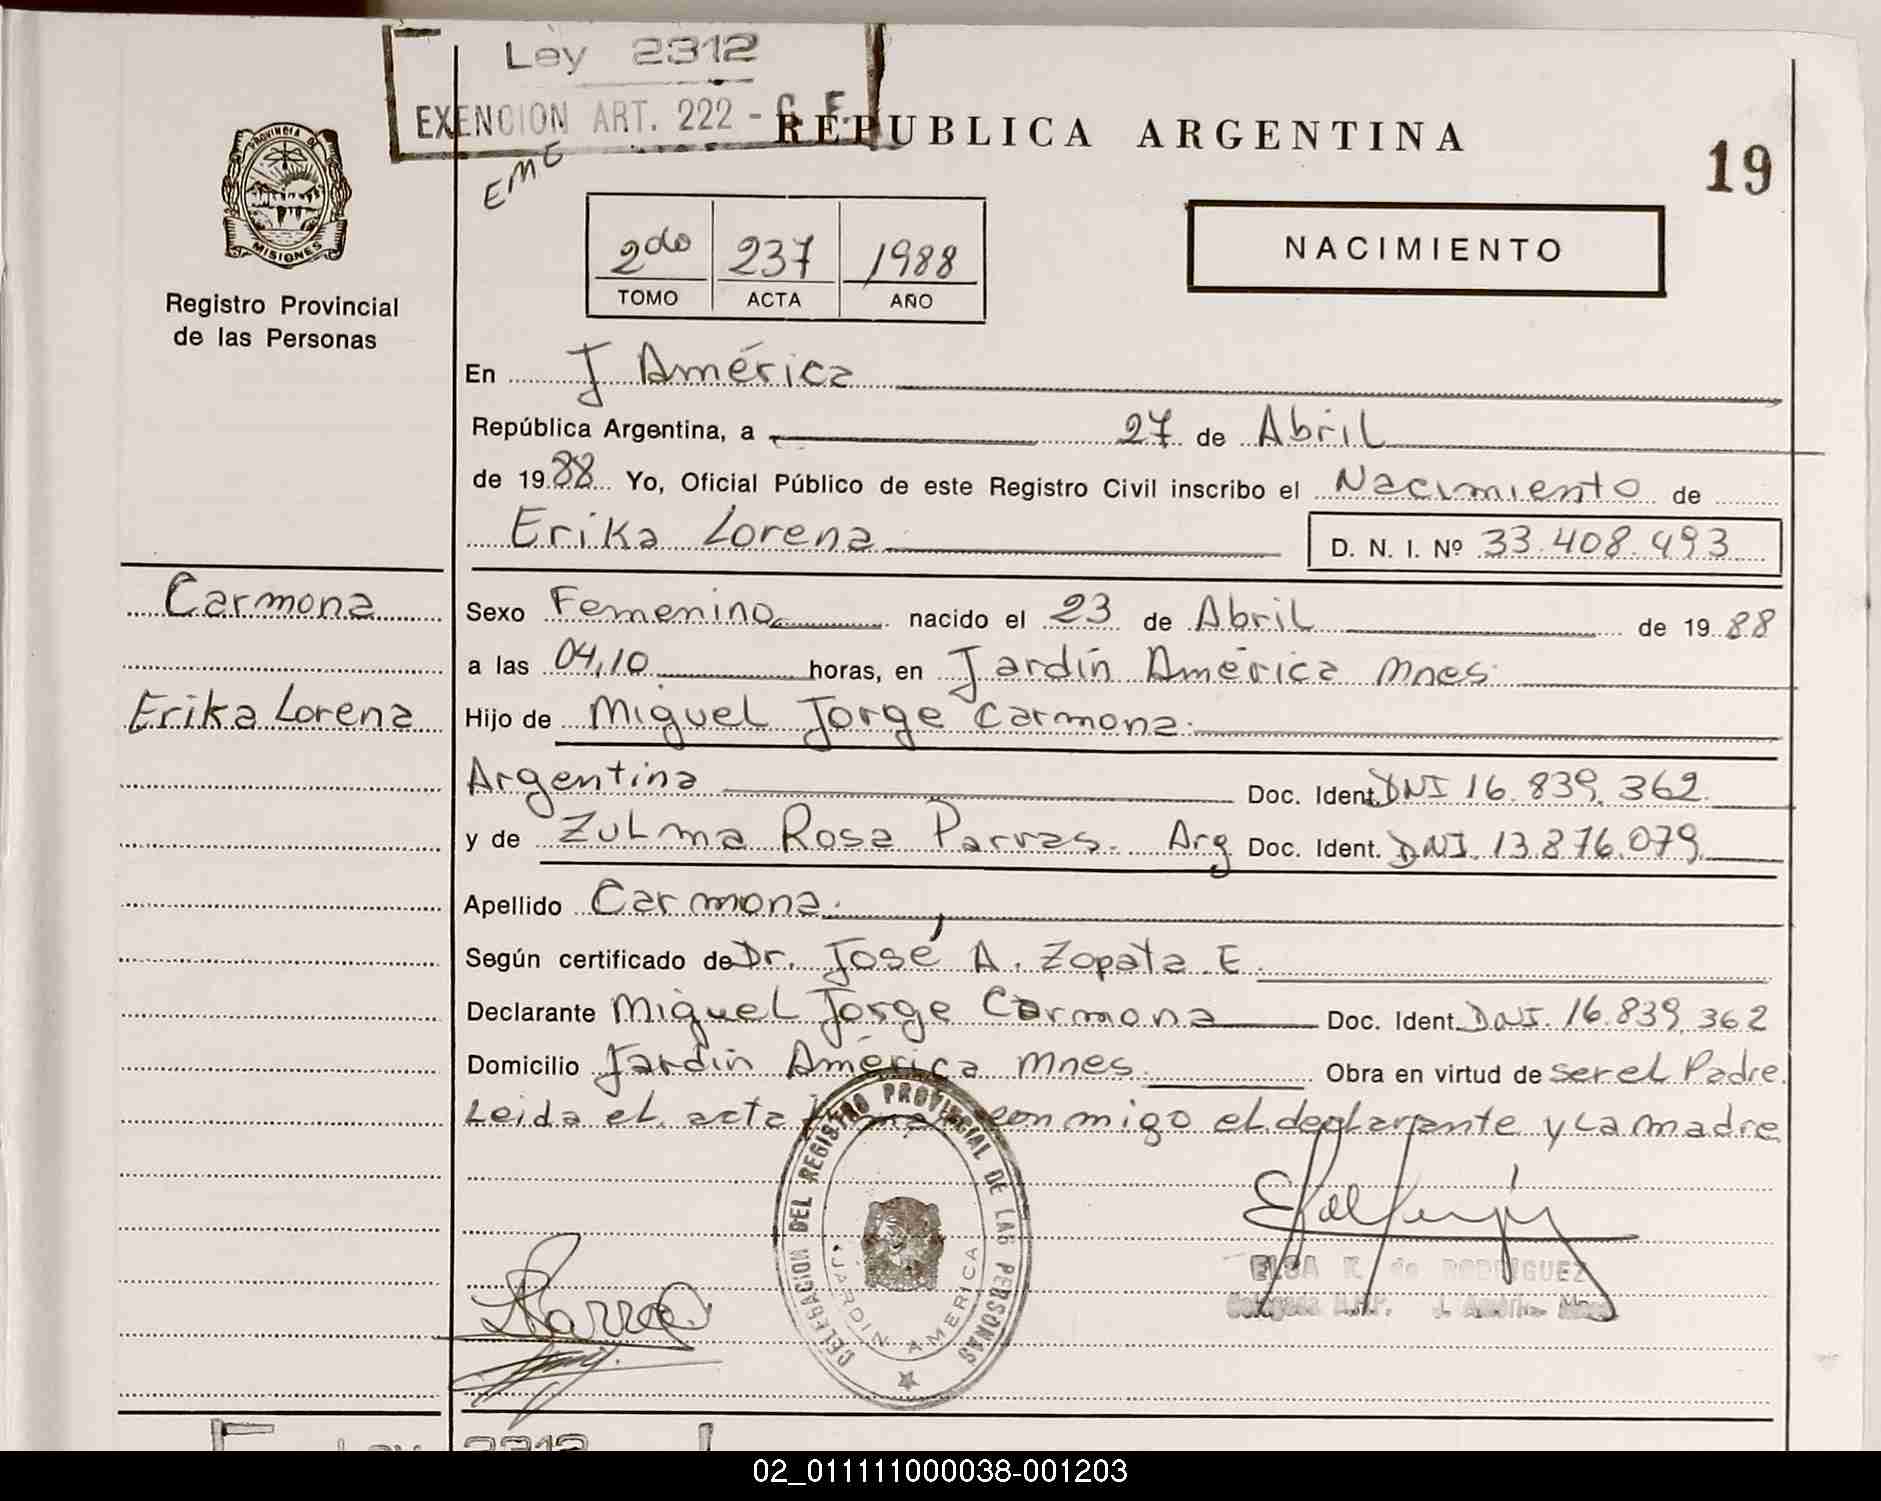 Ley 2312
EXENCION ART. 222 - C. F.
EME
REPUBLICA ARGENTINA
19
PROVINCIA DE
MISIONES
Registro Provincial
de las Personas
2do 237 1988
TOMO ACTA AÑO
NACIMIENTO
En J América
República Argentina, a 27 de Abril
de 1988 Yo, Oficial Público de este Registro Civil inscribo el Nacimiento de
Erika Lorena D. N. I. Nº 33.408.493
Carmona
Erika Lorena
Sexo Femenino nacido el 23 de Abril de 1988
a las 04,10 horas, en Jardín América Mnes.
Hijo de Miguel Jorge Carmona.
Argentina Doc. Ident. DNI 16.839.362
y de Zulma Rosa Parras. Arg Doc. Ident. DNI. 13.876.079
Apellido Carmona.
Según certificado de Dr. José A. Zopata E.
Declarante Miguel Jorge Carmona Doc. Ident. DNI. 16.839.362
Domicilio Jardín América Mnes. Obra en virtud de ser el Padre.
Leida el acta conmigo el declarante y la madre
DELEGACION DEL REGISTRO PROVINCIAL DE LAS PERSONAS
JARDIN AMERICA
ELSA K. de RODRIGUEZ
Delegada R.P.P. J. América Mnes
Ley 2312
02_011111000038-001203